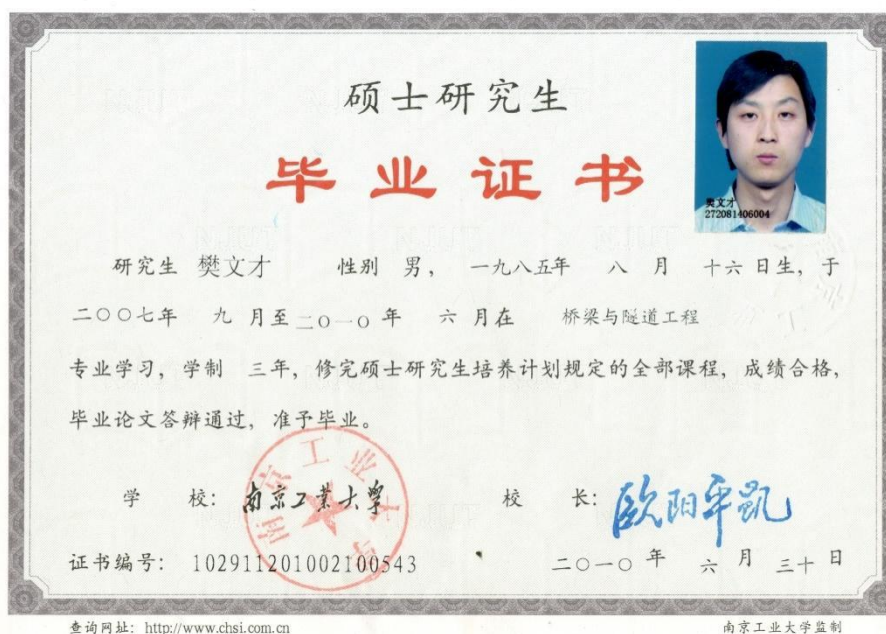 硕士研究生
毕业证书
樊文才
272081406004
研究生 樊文才 性别 男， 一九八五年 八 月 十六 日生，于
二〇〇七年 九 月至二〇一〇 年 六 月在 桥梁与隧道工程
专业学习，学制 三年，修完硕士研究生培养计划规定的全部课程，成绩合格，
毕业论文答辩通过，准予毕业。
学 校：南京工业大学 校 长：欧阳平凯
南京工业大学
证书编号：102911201002100543 二〇一〇 年 六 月 三十 日
查询网址：http://www.chsi.com.cn 南京工业大学监制